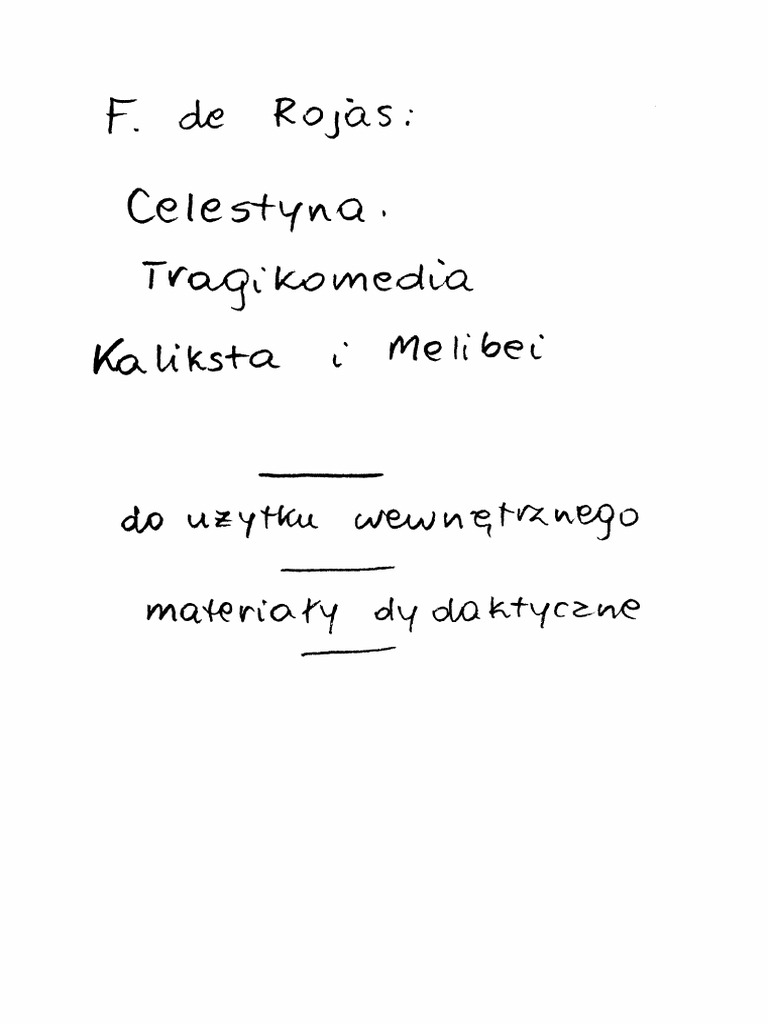 F. de Rojas:
Celestyna.
Tragikomedia
Kaliksta i Melibei
do użytku wewnętrznego
materiały dydaktyczne